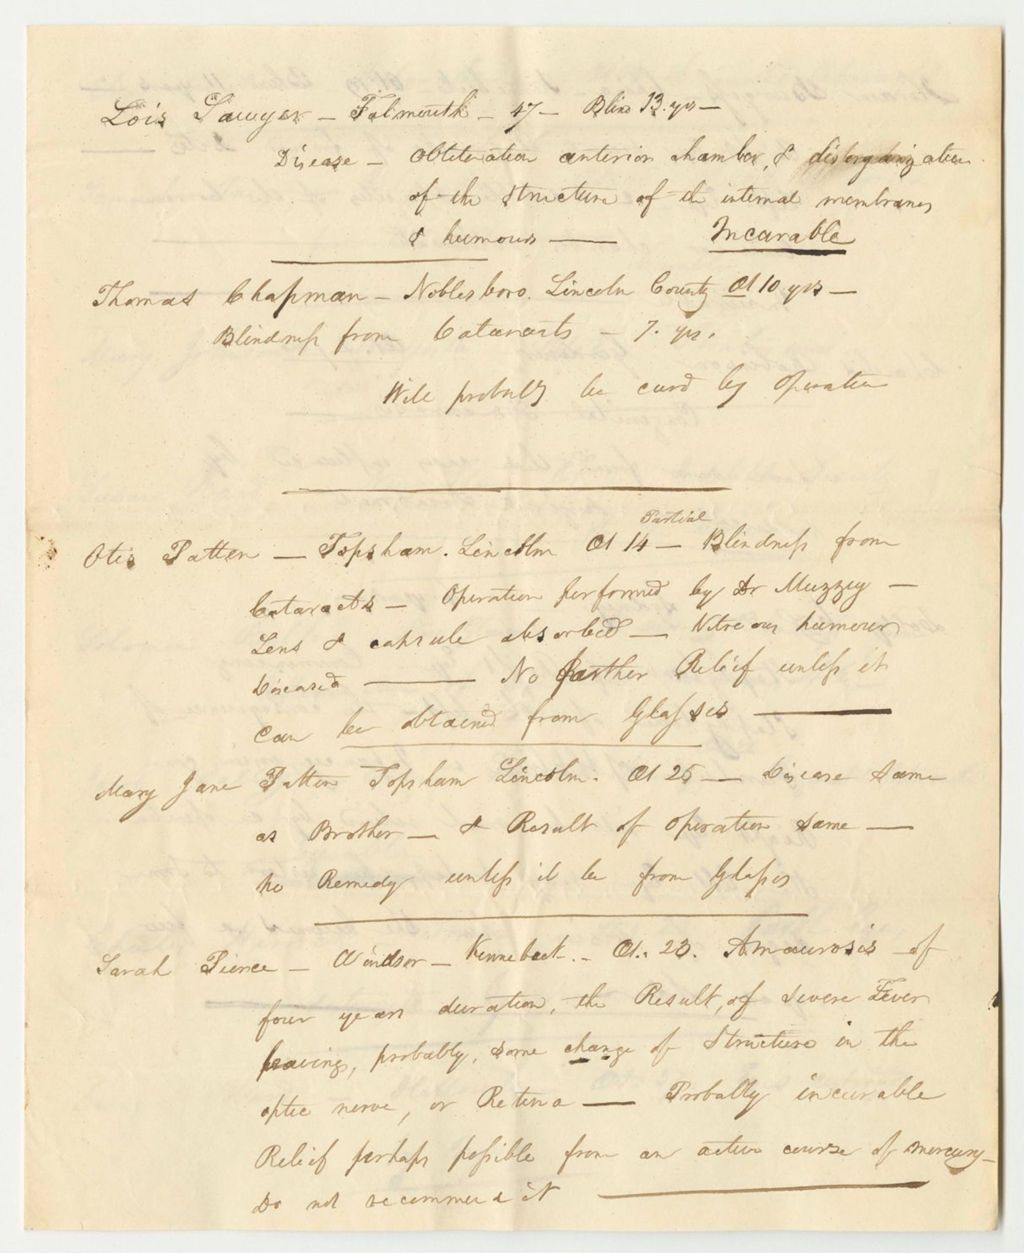 Lois Sawyer – Falmouth – 47 – Blind 13. yrs –
Disease – Obliteration anterior chamber, & disorganization
of the structure of the internal membranes
& humours — Incurable
Thomas Chapman – Noblesboro. Lincoln County At 10 yrs –
Blindness from Cataracts – 7. yrs.
Will probably be cured by operation
Partial
Otis Patten – Topsham. Lincoln At 14 – Blindness from
Cataracts – Operation performed by Dr Muzzey –
Lens & capsule absorbed – Vitreous humour
Diseased — No farther Relief unless it
can be obtained from Glasses —
Mary Jane Patten Topsham Lincoln. At 25 – Disease same
as Brother – & Result of operation same –
no Remedy unless it be from Glasses
Sarah Pierce – Windsor – Kennebeck. – At. 23. Amaurosis of
four years duration, the Result, of severe Fever
leaving, probably, some change of structure in the
optic nerve, or Retina — Probably incurable
Relief perhaps possible from an active course of mercury –
Do not recommend it —